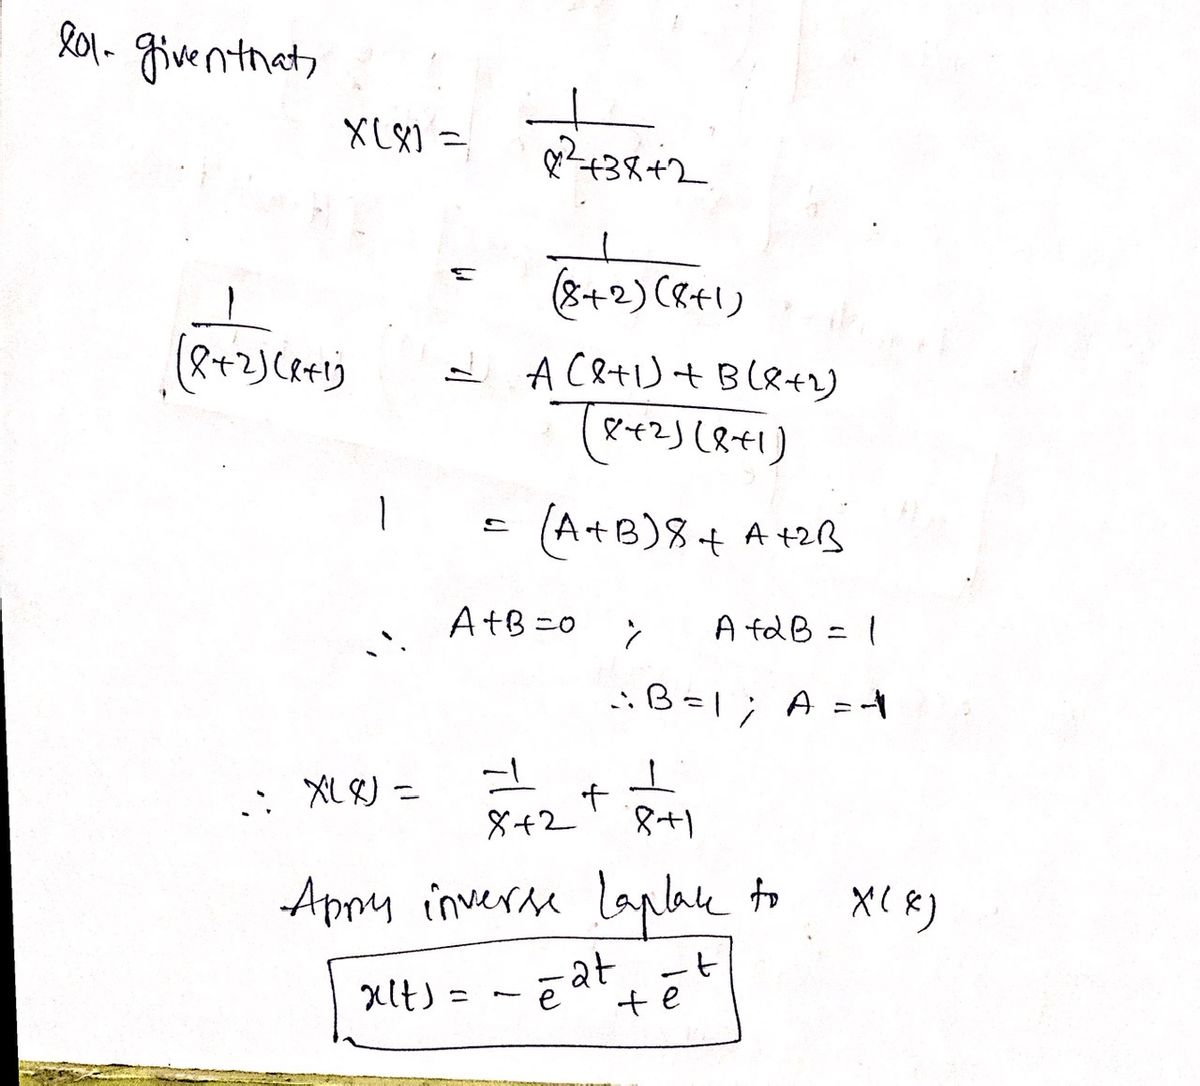 Sol. given that,
X(s) = 1/(s²+3s+2)
= 1/((s+2)(s+1))
1/((s+2)(s+1)) = (A(s+1) + B(s+2))/((s+2)(s+1))
1 = (A+B)s + A+2B
∴ A+B=0 ; A+2B = 1
∴ B=1 ; A = -1
∴ X(s) = -1/(s+2) + 1/(s+1)
Apply inverse laplace to X(s)
x(t) = - e^-2t + e^-t